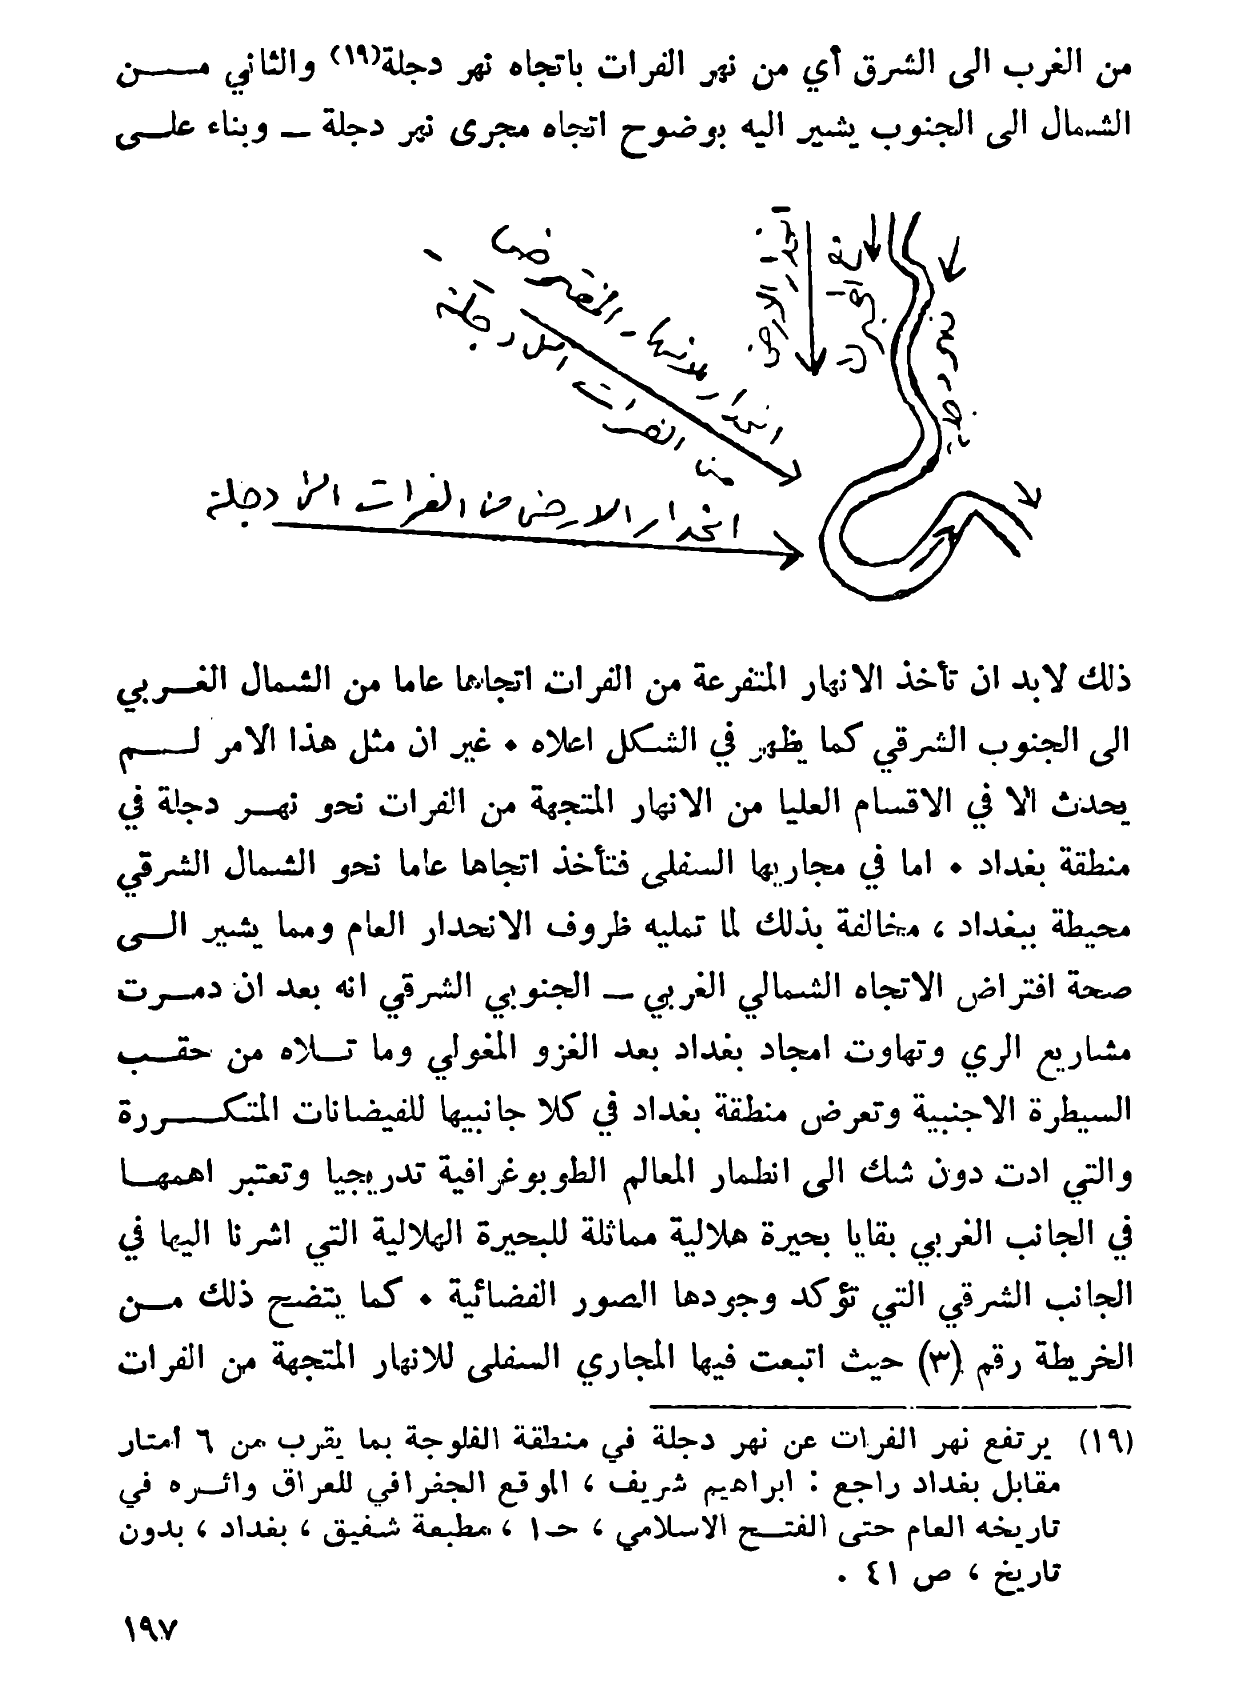 من الغرب الى الشرق أي من نهر الفرات باتجاه نهر دجلة(١٩) والثاني مــن
الشمال الى الجنوب يشير اليه بوضوح اتجاه مجرى نهر دجلة ــ وبناء علــى
انحدار الارض
نحو الجنوب
نهر دجلة
انحدار الانهار المفترض
من الفرات الى دجلة
انحدار الارض من الفرات الى دجلة
ذلك لابد ان تأخذ الانهار المتفرعة من الفرات اتجاها عاما من الشمال الغــربي
الى الجنوب الشرقي كما يظهر في الشكل اعلاه • غير ان مثل هذا الامر لــم
يحدث الا في الاقسام العليا من الانهار المتجهة من الفرات نحو نهــر دجلة في
منطقة بغداد • اما في مجاريها السفلى فتأخذ اتجاها عاما نحو الشمال الشرقي
محيطة ببغداد ، مخالفة بذلك لما تمليه ظروف الانحدار العام ومما يشير الــى
صحة افتراض الاتجاه الشمالي الغربي ــ الجنوبي الشرقي انه بعد ان دمــرت
مشاريع الري وتهاوت امجاد بغداد بعد الغزو المغولي وما تــلاه من حقــب
السيطرة الاجنبية وتعرض منطقة بغداد في كلا جانبيها للفيضانات المتكــررة
والتي ادت دون شك الى انطمار المعالم الطوبوغرافية تدريجيا وتعتبر اهمهــا
في الجانب الغربي بقايا بحيرة هلالية مماثلة للبحيرة الهلالية التي اشرنا اليها في
الجانب الشرقي التي تؤكد وجودها الصور الفضائية • كما يتضح ذلك مــن
الخريطة رقم (٣) حيث اتبعت فيها المجاري السفلى للانهار المتجهة من الفرات
(١٩) يرتفع نهر الفرات عن نهر دجلة في منطقة الفلوجة بما يقرب من ٦ امتار
مقابل بغداد راجع : ابراهيم شريف ، الموقع الجغرافي للعراق واثره في
تاريخه العام حتى الفتــح الاسلامي ، حـ١ ، مطبعة شفيق ، بغداد ، بدون
تاريخ ، ص ٤١ .
١٩٧